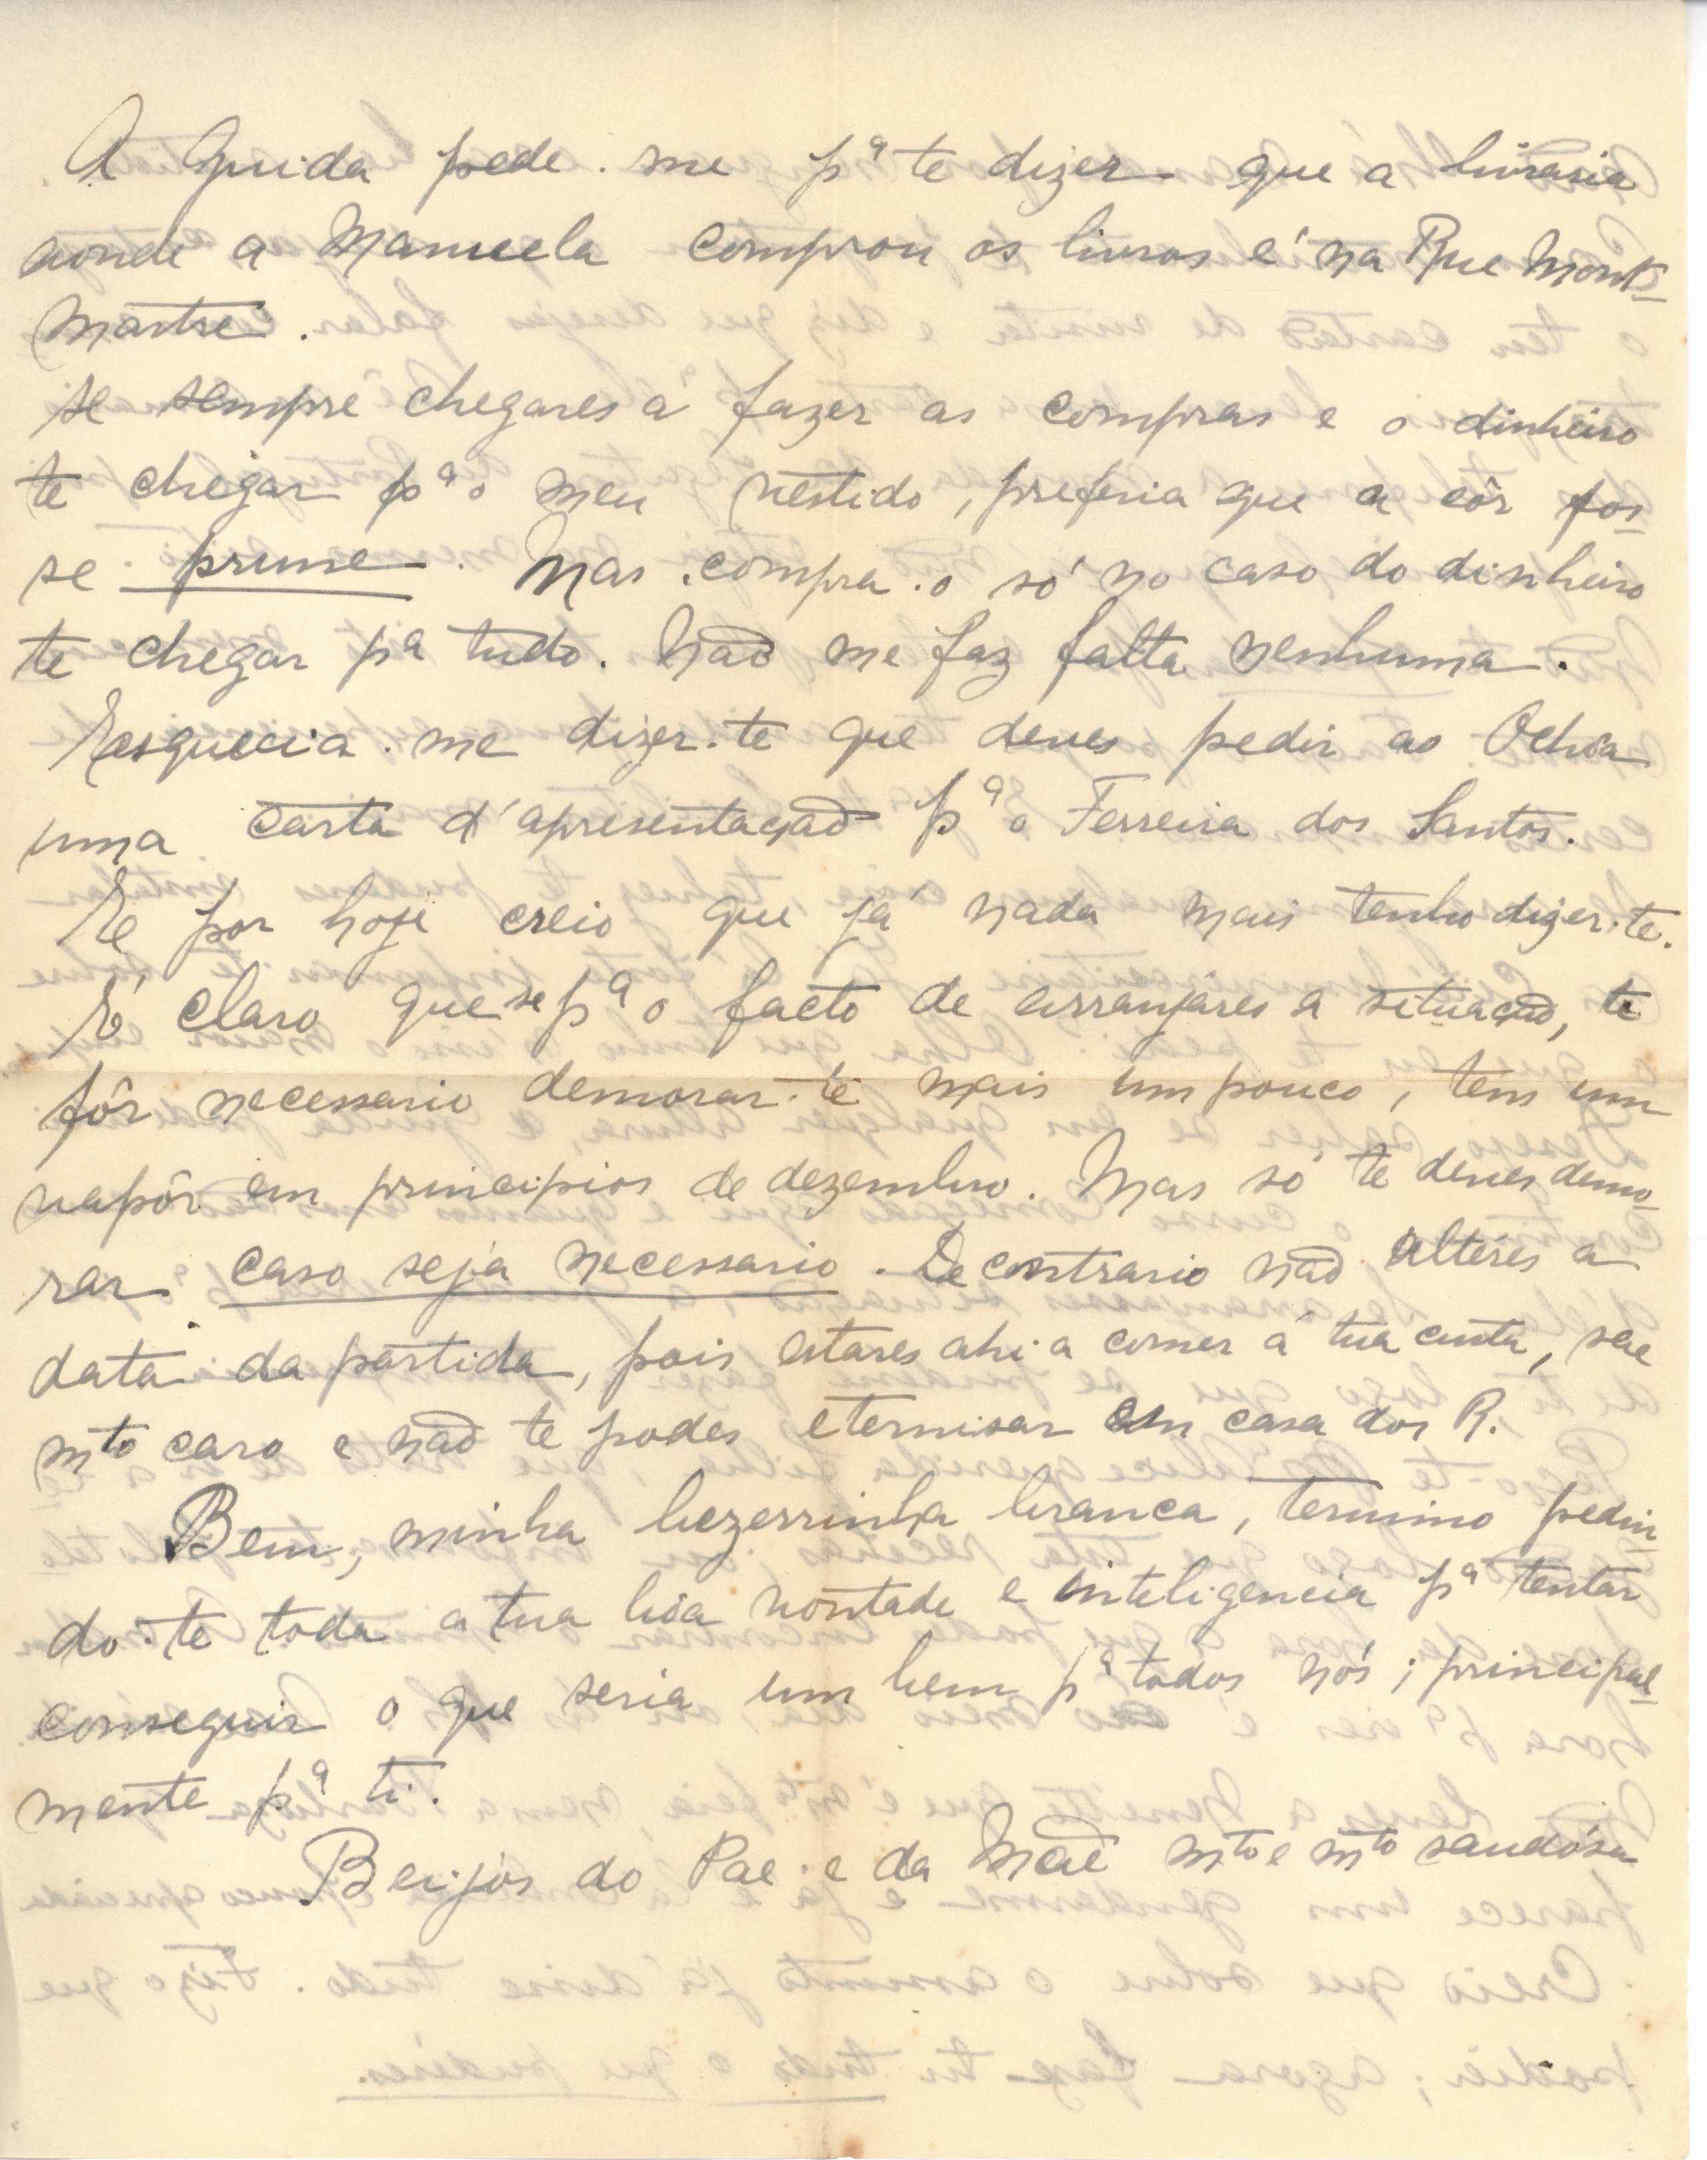 A Guida pede-me pª te dizer que a livraria
aonde a Manuela comprou os livros é na Rue Mont-
martre.
Se sempre chegares á fazer as compras e o dinheiro
te chegar pª o meu vestido, preferia que a côr fos-
se prune. Mas compra-o só no caso do dinheiro
te chegar pª tudo. Não me faz falta nenhuma.
Esquecia-me dizer-te que deves pedir ao Ochôa
uma carta d'apresentação pª o Ferreira dos Santos.
E por hoje creio que já nada mais tenho dizer-te.
É claro que se pª o facto de arranjáres a situação, te
fôr necessario demorar-te mais um pouco, tens um
vapôr em principios de dezembro. Mas só te deves demo-
rar caso seja necessario. De contrario não altéres a
data da partida, pois estares ahi a comer á tua custa, sae
mto caro e não te podes eternisar em casa dos R.
Bem, minha bezerrinha branca, termino pedin-
do-te toda a tua bôa vontade e inteligencia pª tentar
conseguir o que seria um bem pª todos nós; principal-
mente pª ti.
Beijos do Pae e da Mãe mto e mto saudósa